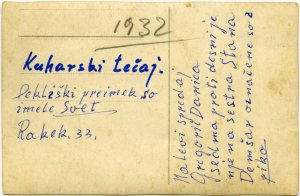 1932
Kuharski tečaj.
Dekliški preimek so
imele Svet
Rakek 33.
Na levi spredaj
Grigorič Danica
sedma proti desni je
njena sestra Štana
Demšar označene so z
piko